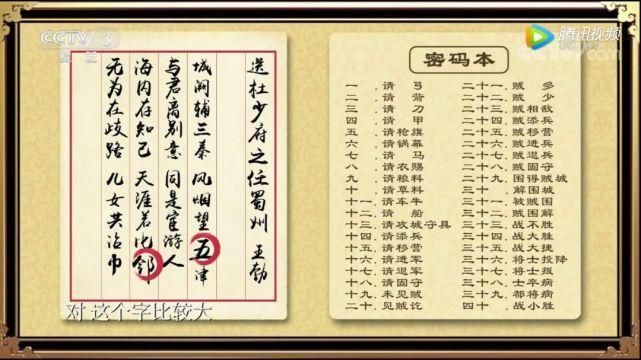 CCTV 3
综艺
腾讯视频
CCTV
送杜少府之任蜀州 王勃
城阙辅三秦 风烟望五津
与君离别意 同是宦游人
海内存知己 天涯若比邻
无为在歧路 儿女共沾巾
密码本
一、请弓
二、请箭
三、请刀
四、请甲
五、请枪旗
六、请锅幕
七、请马
八、请衣赐
九、请粮料
十、请草料
十一、请车牛
十二、请船
十三、请攻城守具
十四、请添兵
十五、请移营
十六、请进军
十七、请退军
十八、请固守
十九、未见贼
二十、见贼讫
二十一、贼多
二十二、贼少
二十三、贼相敌
二十四、贼添兵
二十五、贼移营
二十六、贼进兵
二十七、贼退兵
二十八、贼固守
二十九、围得贼城
三十、解围城
三十一、被贼围
三十二、贼围解
三十三、战不胜
三十四、战大胜
三十五、战大捷
三十六、将士投降
三十七、将士叛
三十八、士卒病
三十九、都将病
四十、战小胜
对 这个字比较大